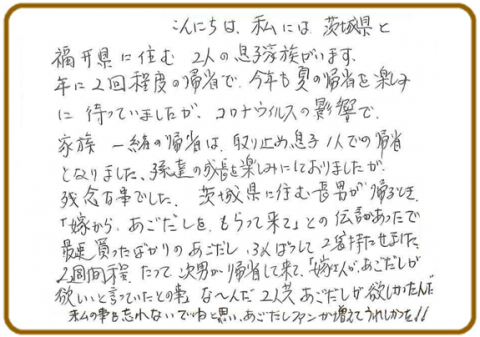 こんにちは、私には 茨城県と
福井県に住む 2人の息子家族がいます。
年に2回程度の帰省で、今年も夏の帰省を楽しみ
に 待っていましたが、コロナウイルスの影響で、
家族 一緒の帰省は、取り止め、息子1人での帰省
となりました、孫達の成長を楽しみにしておりましたが、
残念な事でした。 茨城県に住む長男が帰るとき、
「嫁から、あごだしを、もらって来て」との伝言があったで
買ったばかりのあごだし、2箸持たせました
2週間程、たって 次男が帰省して来て、「嫁さんが、あごだしが
欲しいと言っていたとの事」な〜んだ 2人共 あごだしが欲しかったんだ
私の事も忘れないでねと思い、あごだしファンが増えてうれしかった!!